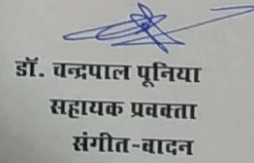 डॉ. चन्द्रपाल पूनिया
सहायक प्रवक्ता
संगीत-वादन